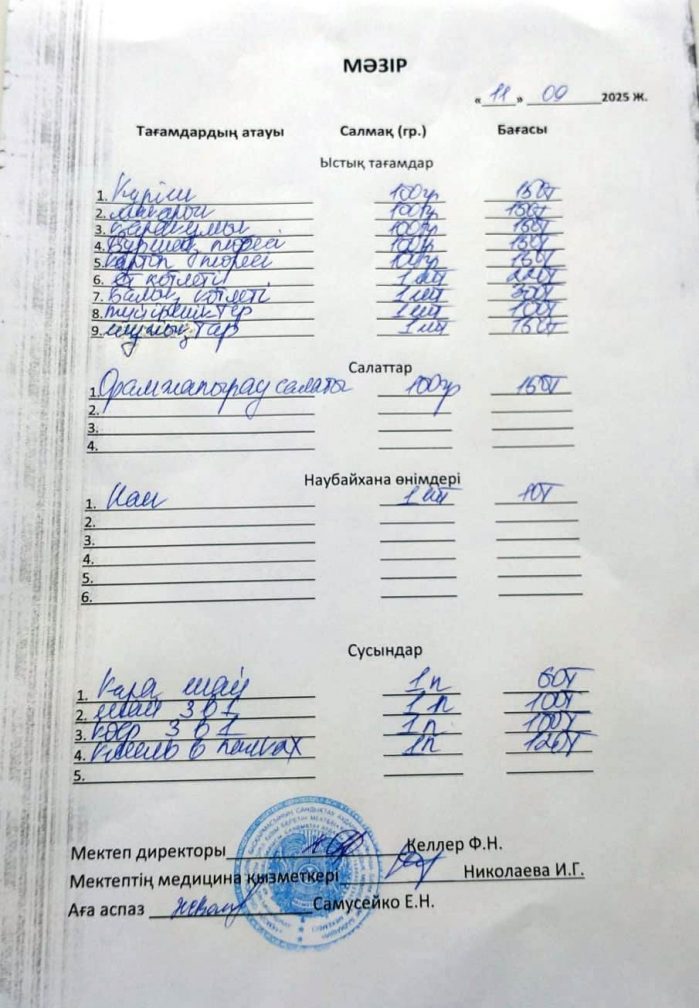 МӘЗІР
« 11 » 09 2025 Ж.
Тағамдардың атауы Салмақ (гр.) Бағасы
Ыстық тағамдар
1. Күріш 100гр 150т
2. макарон 100гр 150т
3. Қарақұмық 100гр 150т
4. Бұршақ пюреси 100гр 150т
5. Картоп пюреси 100гр 150т
6. Ет котлеті 1 шт 220т
7. Балық котлеті 1 шт 300т
8. 1 шт 100т
9. шұжықтар 1 шт 150т
Салаттар
1. Орамжапырақ салаты 100гр 150т
2.
3.
4.
Наубайхана өнімдері
1. Нан 1 шт 10т
2.
3.
4.
5.
6.
Сусындар
1. Қара шай 1п 60т
2. шай 3 в 1 1п 100т
3. кофе 3 в 1 1п. 100т
4. кисель в 1п 120т
5.
Мектеп директоры Келлер Ф.Н.
Мектептің медицина қызметкері Николаева И.Г.
Аға аспаз Самусейко Е.Н.